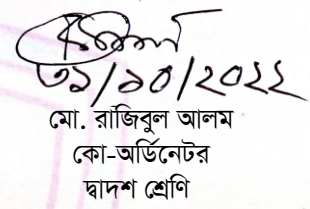 ৩১/১০/২০২২
মো. রাজিবুল আলম
কো-অর্ডিনেটর
দ্বাদশ শ্রেণি